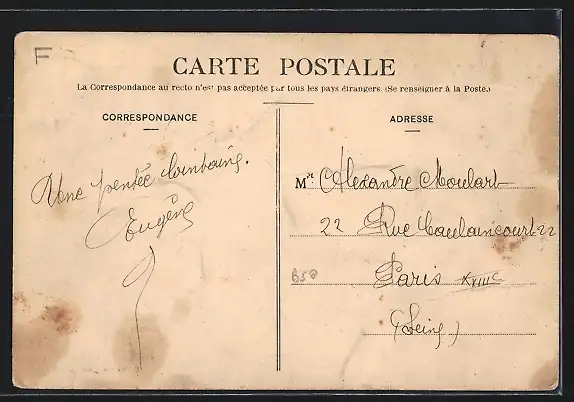 F
CARTE POSTALE
La Correspondance au recto n'est pas acceptée par tous les pays étrangers. (Se renseigner à la Poste.)
CORRESPONDANCE
Une pensée lointaine.
Eugène
ADRESSE
Mr Alexandre Moulart
22 Rue Caulaincourt 22
Paris XVIIIe
(Seine)